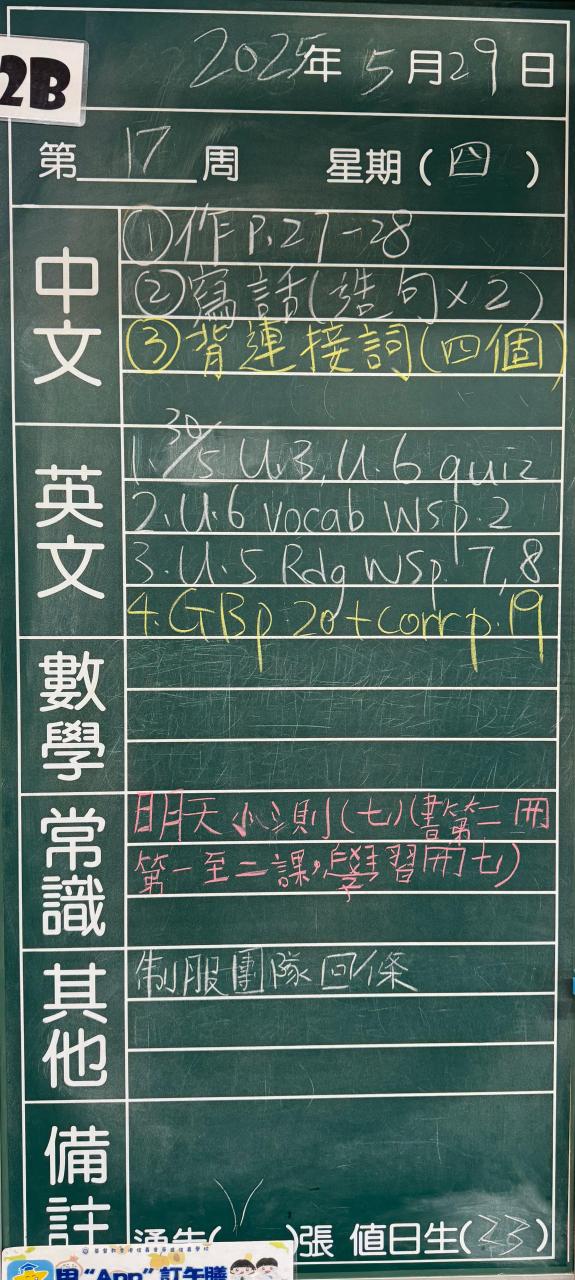 2B
2025年5月29日
第17周 星期(四)
中文
①作P.27-28
②寫話(造句×2)
③背連接詞(四個)
英文
1. 30/5 U.3, U.6 quiz
2. U.6 vocab WSp.2
3. U.5 Rdg WSp.7,8
4. GBp.20+corr p.19
數學
常識
明天小測(七)(書第二冊
第一至二課,學習冊七)
其他
制服團隊回條
備註
通告( )張 值日生(33)
用“App”訂午膳